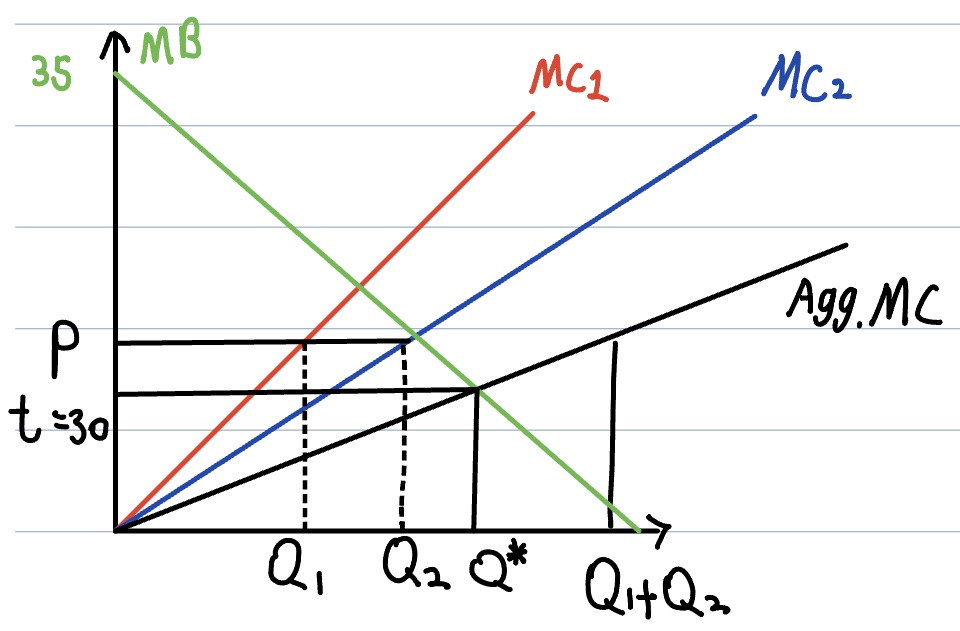 MB
35
MC1
MC2
Agg.MC
P
t=30
Q1
Q2
Q*
Q1+Q2